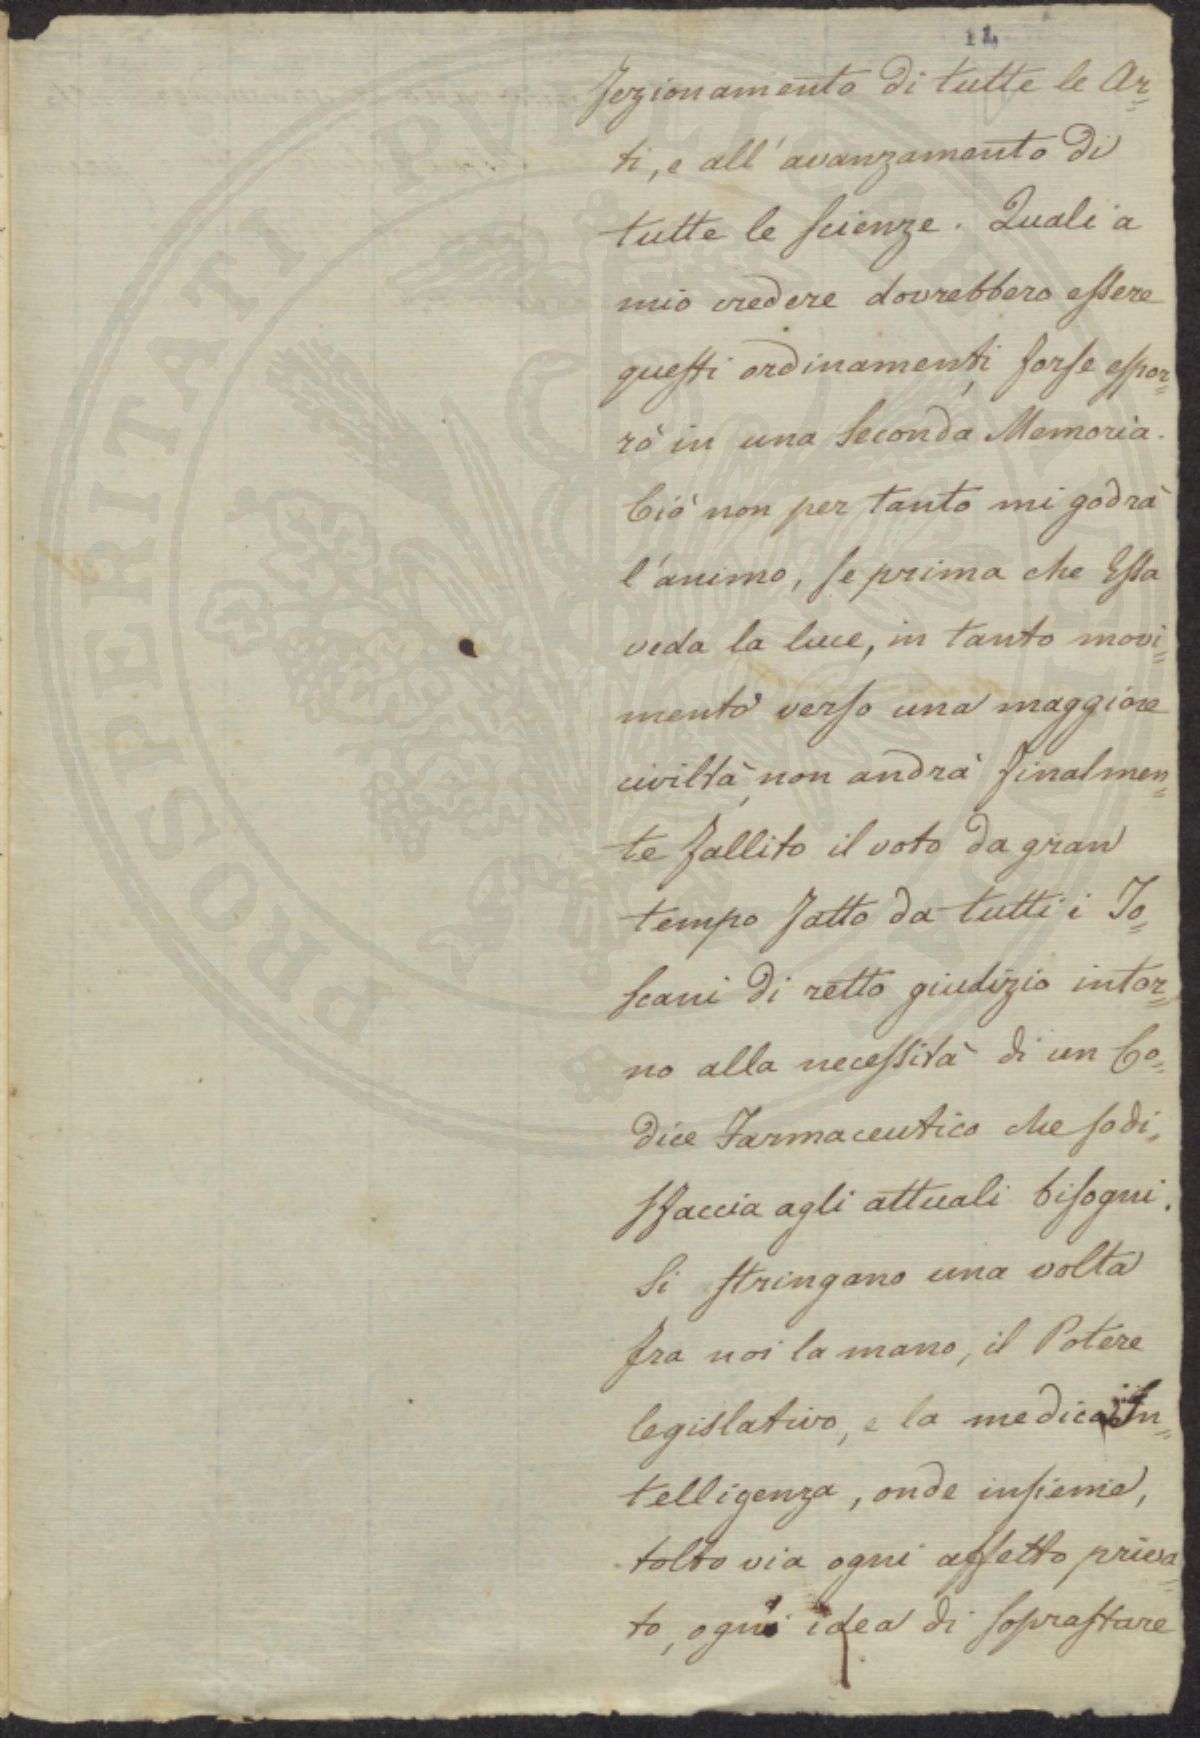 11
fezionamento di tutte le Ar=
ti, e all'avanzamento di
tutte le scienze. Quali a
mio credere dovrebbero essere
questi ordinamenti, forse espor=
rò in una seconda Memoria.
Ciò non per tanto mi godrà
l'animo, se prima che Essa
veda la luce, in tanto movi=
mento verso una maggiore
civiltà, non andrà finalmen=
te fallito il voto da gran
tempo fatto da tutti i To=
scani di retto giudizio intor=
no alla necessità di un Co=
dice Farmaceutico che sodi=
sfaccia agli attuali bisogni.
Si stringano una volta
fra noi la mano, il Potere
legislativo, e la medica In=
telligenza, onde insieme,
tolto via ogni affetto priva=
to, ogni idea di soprastare
PROSPERITATI PVBLICAE